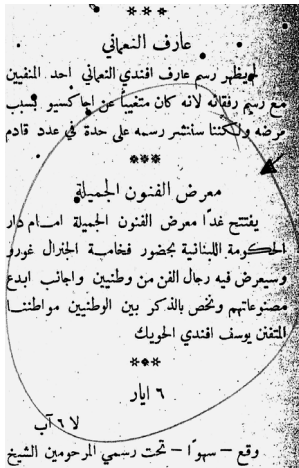 ***
عارف النعماني
لم يظهر رسم عارف افندي النعماني احد المنفيين
مع رسم رفقائه لانه كان متغيباً عن اجاكسيو بسبب
مرضه ولكننا سننشر رسمه على حدة في عدد قادم
***
معرض الفنون الجميلة
يفتتح غداً معرض الفنون الجميلة امام دار
الحكومة اللبنانية بحضور فخامة الجنرال غورو
وسيعرض فيه رجال الفن من وطنيين واجانب ابدع
مصنوعاتهم ونخص بالذكر بين الوطنيين مواطننا
المتفنن يوسف افندي الحويك
***
٦ ايار
لا ٦ آب
وقع – سهواً – تحت رسمي المرحومين الشيخ